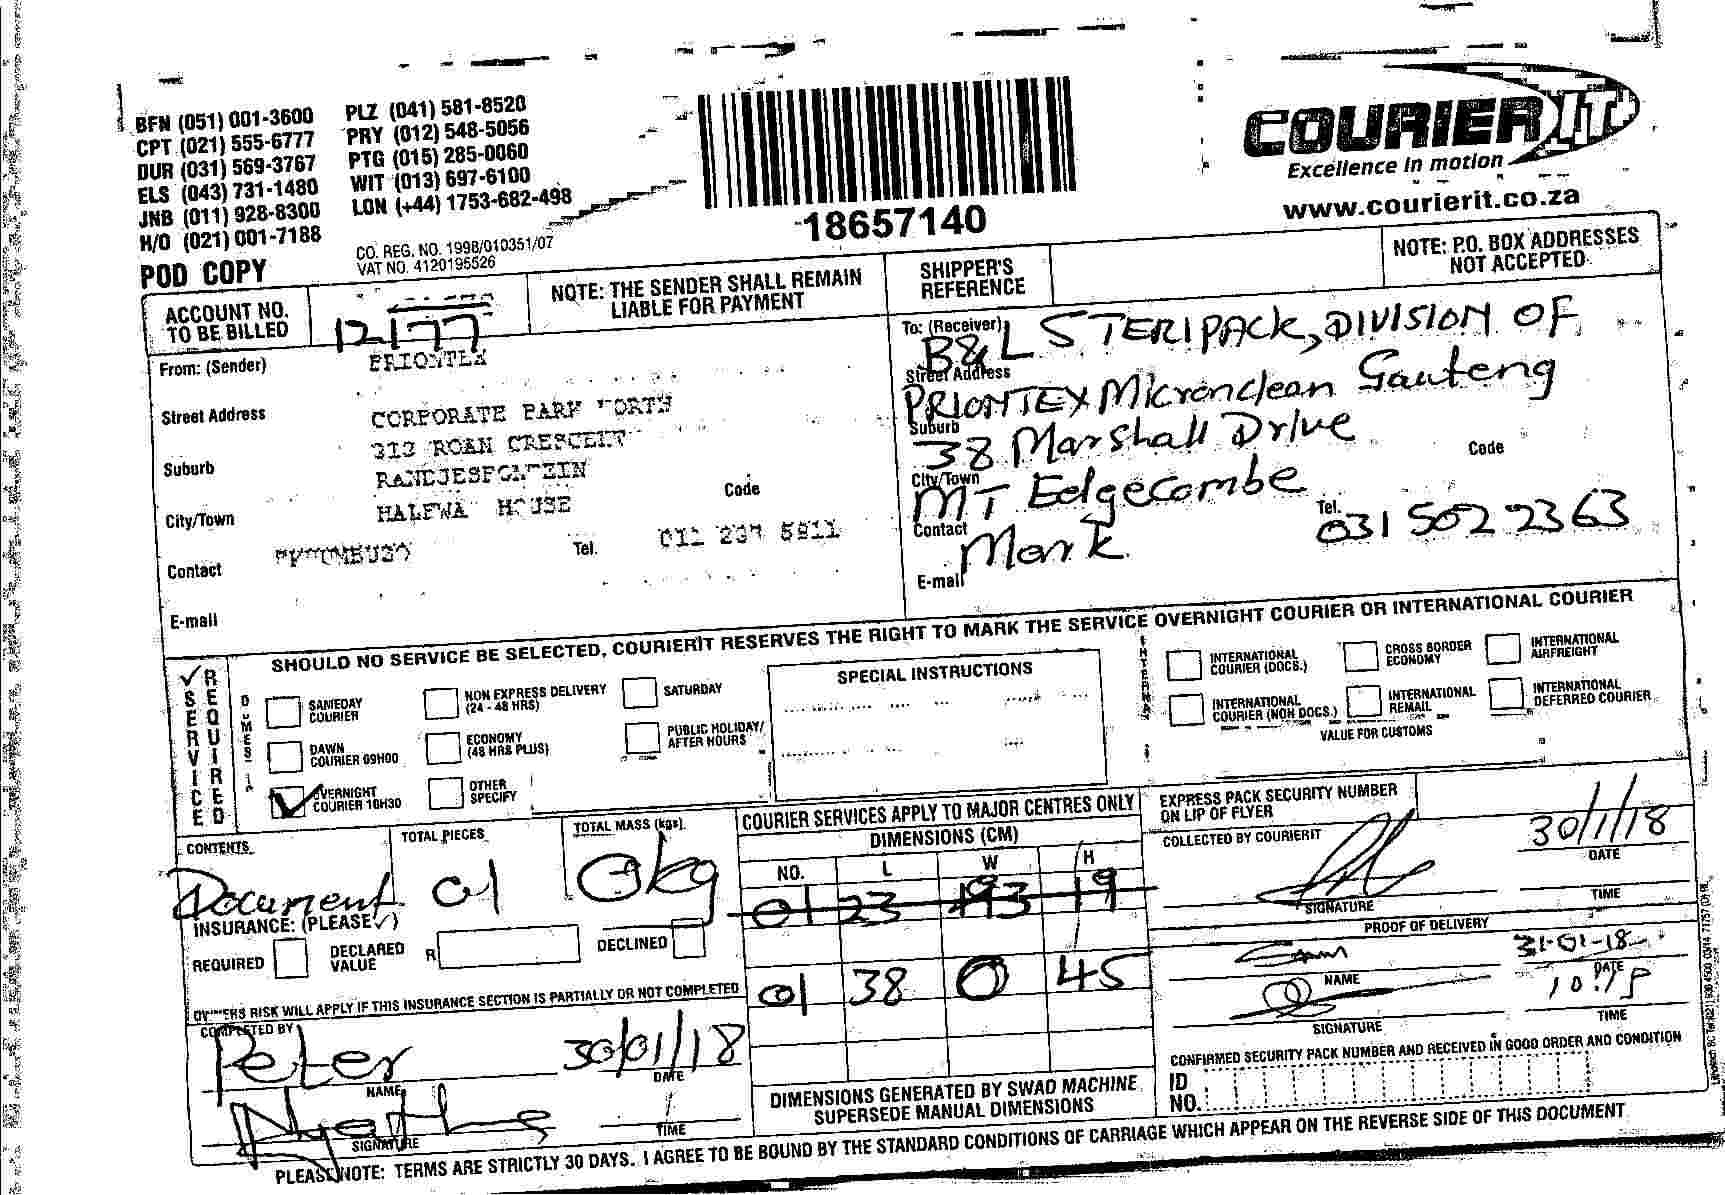 BFN (051) 001-3600
CPT (021) 555-6777
DUR (031) 569-3767
ELS (043) 731-1480
JNB (011) 928-8300
H/O (021) 001-7188
PLZ (041) 581-8520
PRY (012) 548-5056
PTG (015) 285-0060
WIT (013) 697-6100
LON (+44) 1753-682-498
POD COPY
CO. REG. NO. 1998/010351/07
VAT NO. 4120195526
18657140
COURIER IT
Excellence in motion
www.courierit.co.za
ACCOUNT NO.
TO BE BILLED
12177
NOTE: THE SENDER SHALL REMAIN
LIABLE FOR PAYMENT
SHIPPER'S
REFERENCE
NOTE: P.O. BOX ADDRESSES
NOT ACCEPTED
From: (Sender)
PRIONTEX
Street Address
CORPORATE PARK NORTH
313 ROAN CRESCENT
Suburb
RANDJESFONTEIN
City/Town
HALFWA HOUSE
Code
Contact
Tel.
011 237 5911
E-mail
To: (Receiver)
B&L STERIPACK, DIVISION OF
Street Address
PRIONTEX Micronclean Gauteng
Suburb
38 Marshall Drive
Code
City/Town
MT Edgecombe
Contact
Mark
Tel.
031 502 2363
E-mail
SHOULD NO SERVICE BE SELECTED, COURIERIT RESERVES THE RIGHT TO MARK THE SERVICE OVERNIGHT COURIER OR INTERNATIONAL COURIER
SERVICE
REQUIRED
SAMEDAY
COURIER
DAWN
COURIER 09H00
OVERNIGHT
COURIER 10H30
NON EXPRESS DELIVERY
(24 - 48 HRS)
ECONOMY
(48 HRS PLUS)
OTHER
SPECIFY
SATURDAY
PUBLIC HOLIDAY/
AFTER HOURS
SPECIAL INSTRUCTIONS
INTERNATIONAL
COURIER (DOCS.)
INTERNATIONAL
COURIER (NON DOCS.)
CROSS BORDER
ECONOMY
INTERNATIONAL
REMAIL
INTERNATIONAL
AIRFREIGHT
INTERNATIONAL
DEFERRED COURIER
VALUE FOR CUSTOMS
CONTENTS
Document
TOTAL PIECES
01
TOTAL MASS (kgs)
0kg
INSURANCE: (PLEASE ✓)
REQUIRED
DECLARED
VALUE
R
DECLINED
OWNERS RISK WILL APPLY IF THIS INSURANCE SECTION IS PARTIALLY OR NOT COMPLETED
COMPLETED BY
Peter
NAME
30/01/18
DATE
SIGNATURE
TIME
COURIER SERVICES APPLY TO MAJOR CENTRES ONLY
DIMENSIONS (CM)
NO. L W H
01 23 19
01 38 0 45
DIMENSIONS GENERATED BY SWAD MACHINE
SUPERSEDE MANUAL DIMENSIONS
EXPRESS PACK SECURITY NUMBER
ON LIP OF FLYER
COLLECTED BY COURIERIT
SIGNATURE
30/1/18
DATE
TIME
PROOF OF DELIVERY
NAME
31-01-18
DATE
SIGNATURE
TIME
CONFIRMED SECURITY PACK NUMBER AND RECEIVED IN GOOD ORDER AND CONDITION
ID
NO.
PLEASE NOTE: TERMS ARE STRICTLY 30 DAYS. I AGREE TO BE BOUND BY THE STANDARD CONDITIONS OF CARRIAGE WHICH APPEAR ON THE REVERSE SIDE OF THIS DOCUMENT